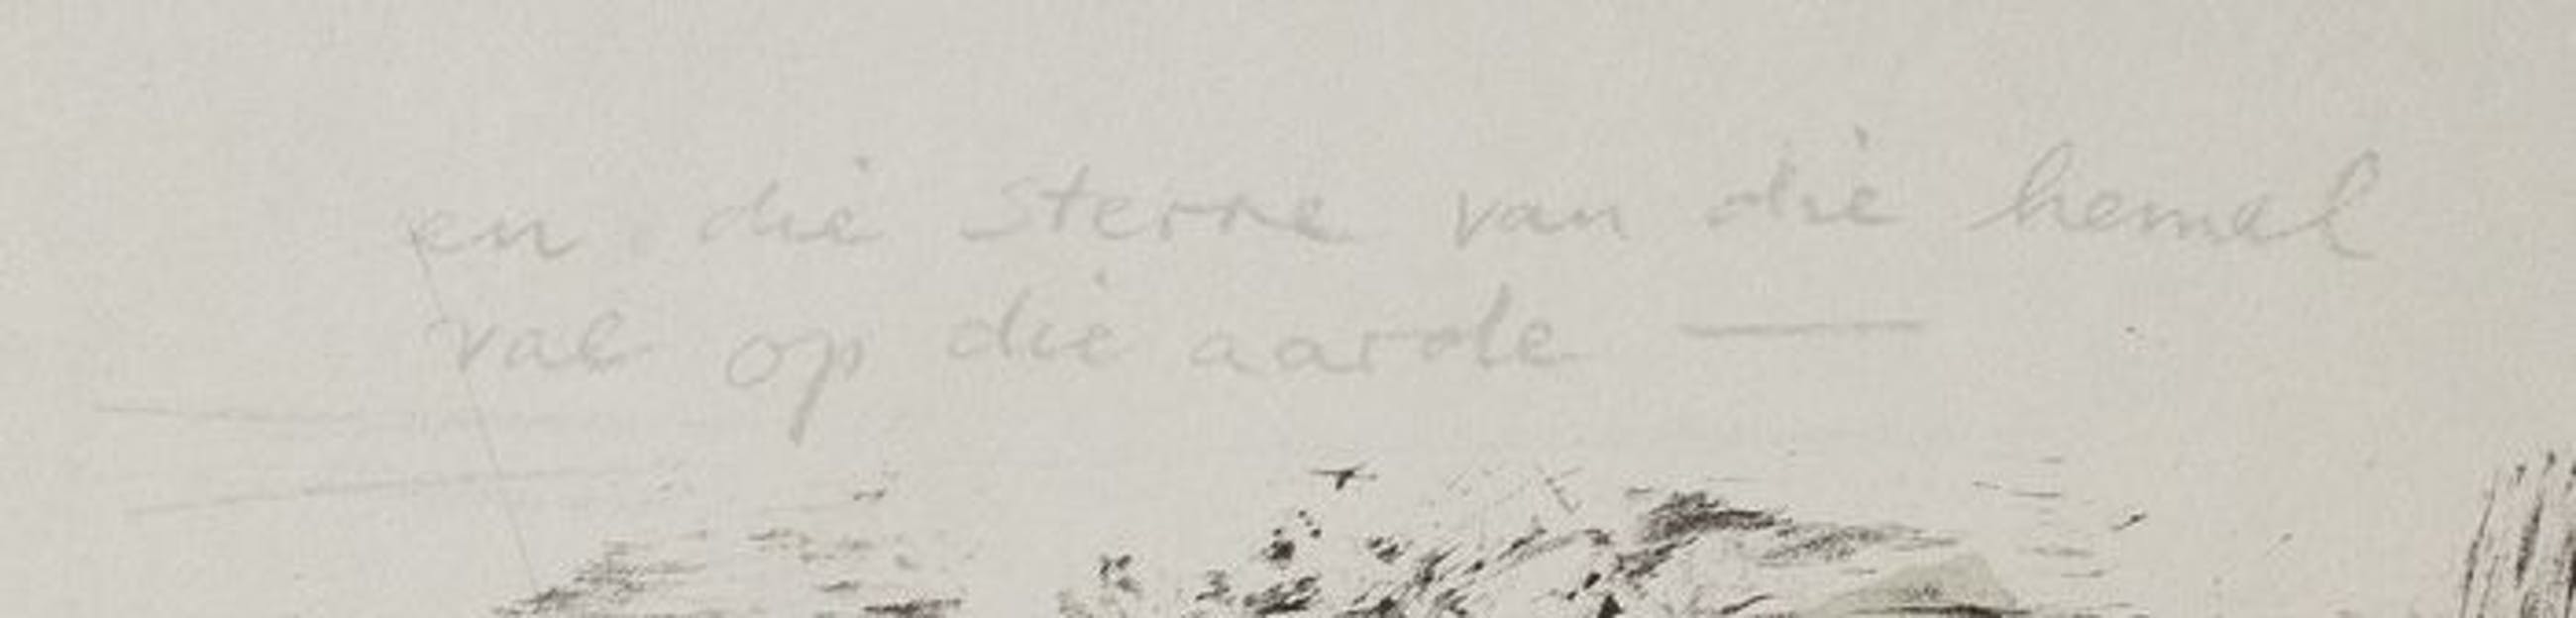 en die sterre van die hemel
val op die aarde —